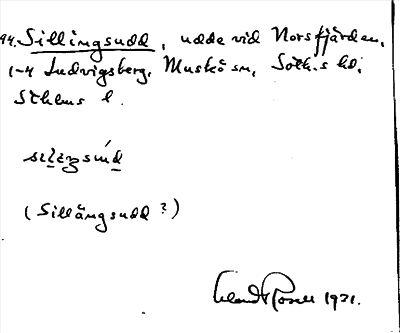 94. Sillingsudd, udde vid Norsfjärden,
1-4 Ludvigsberg, Muskö sn, Soth.s hd,
Sthlms l.
sılıŋsúd
(Sillängsudd?)
1931.